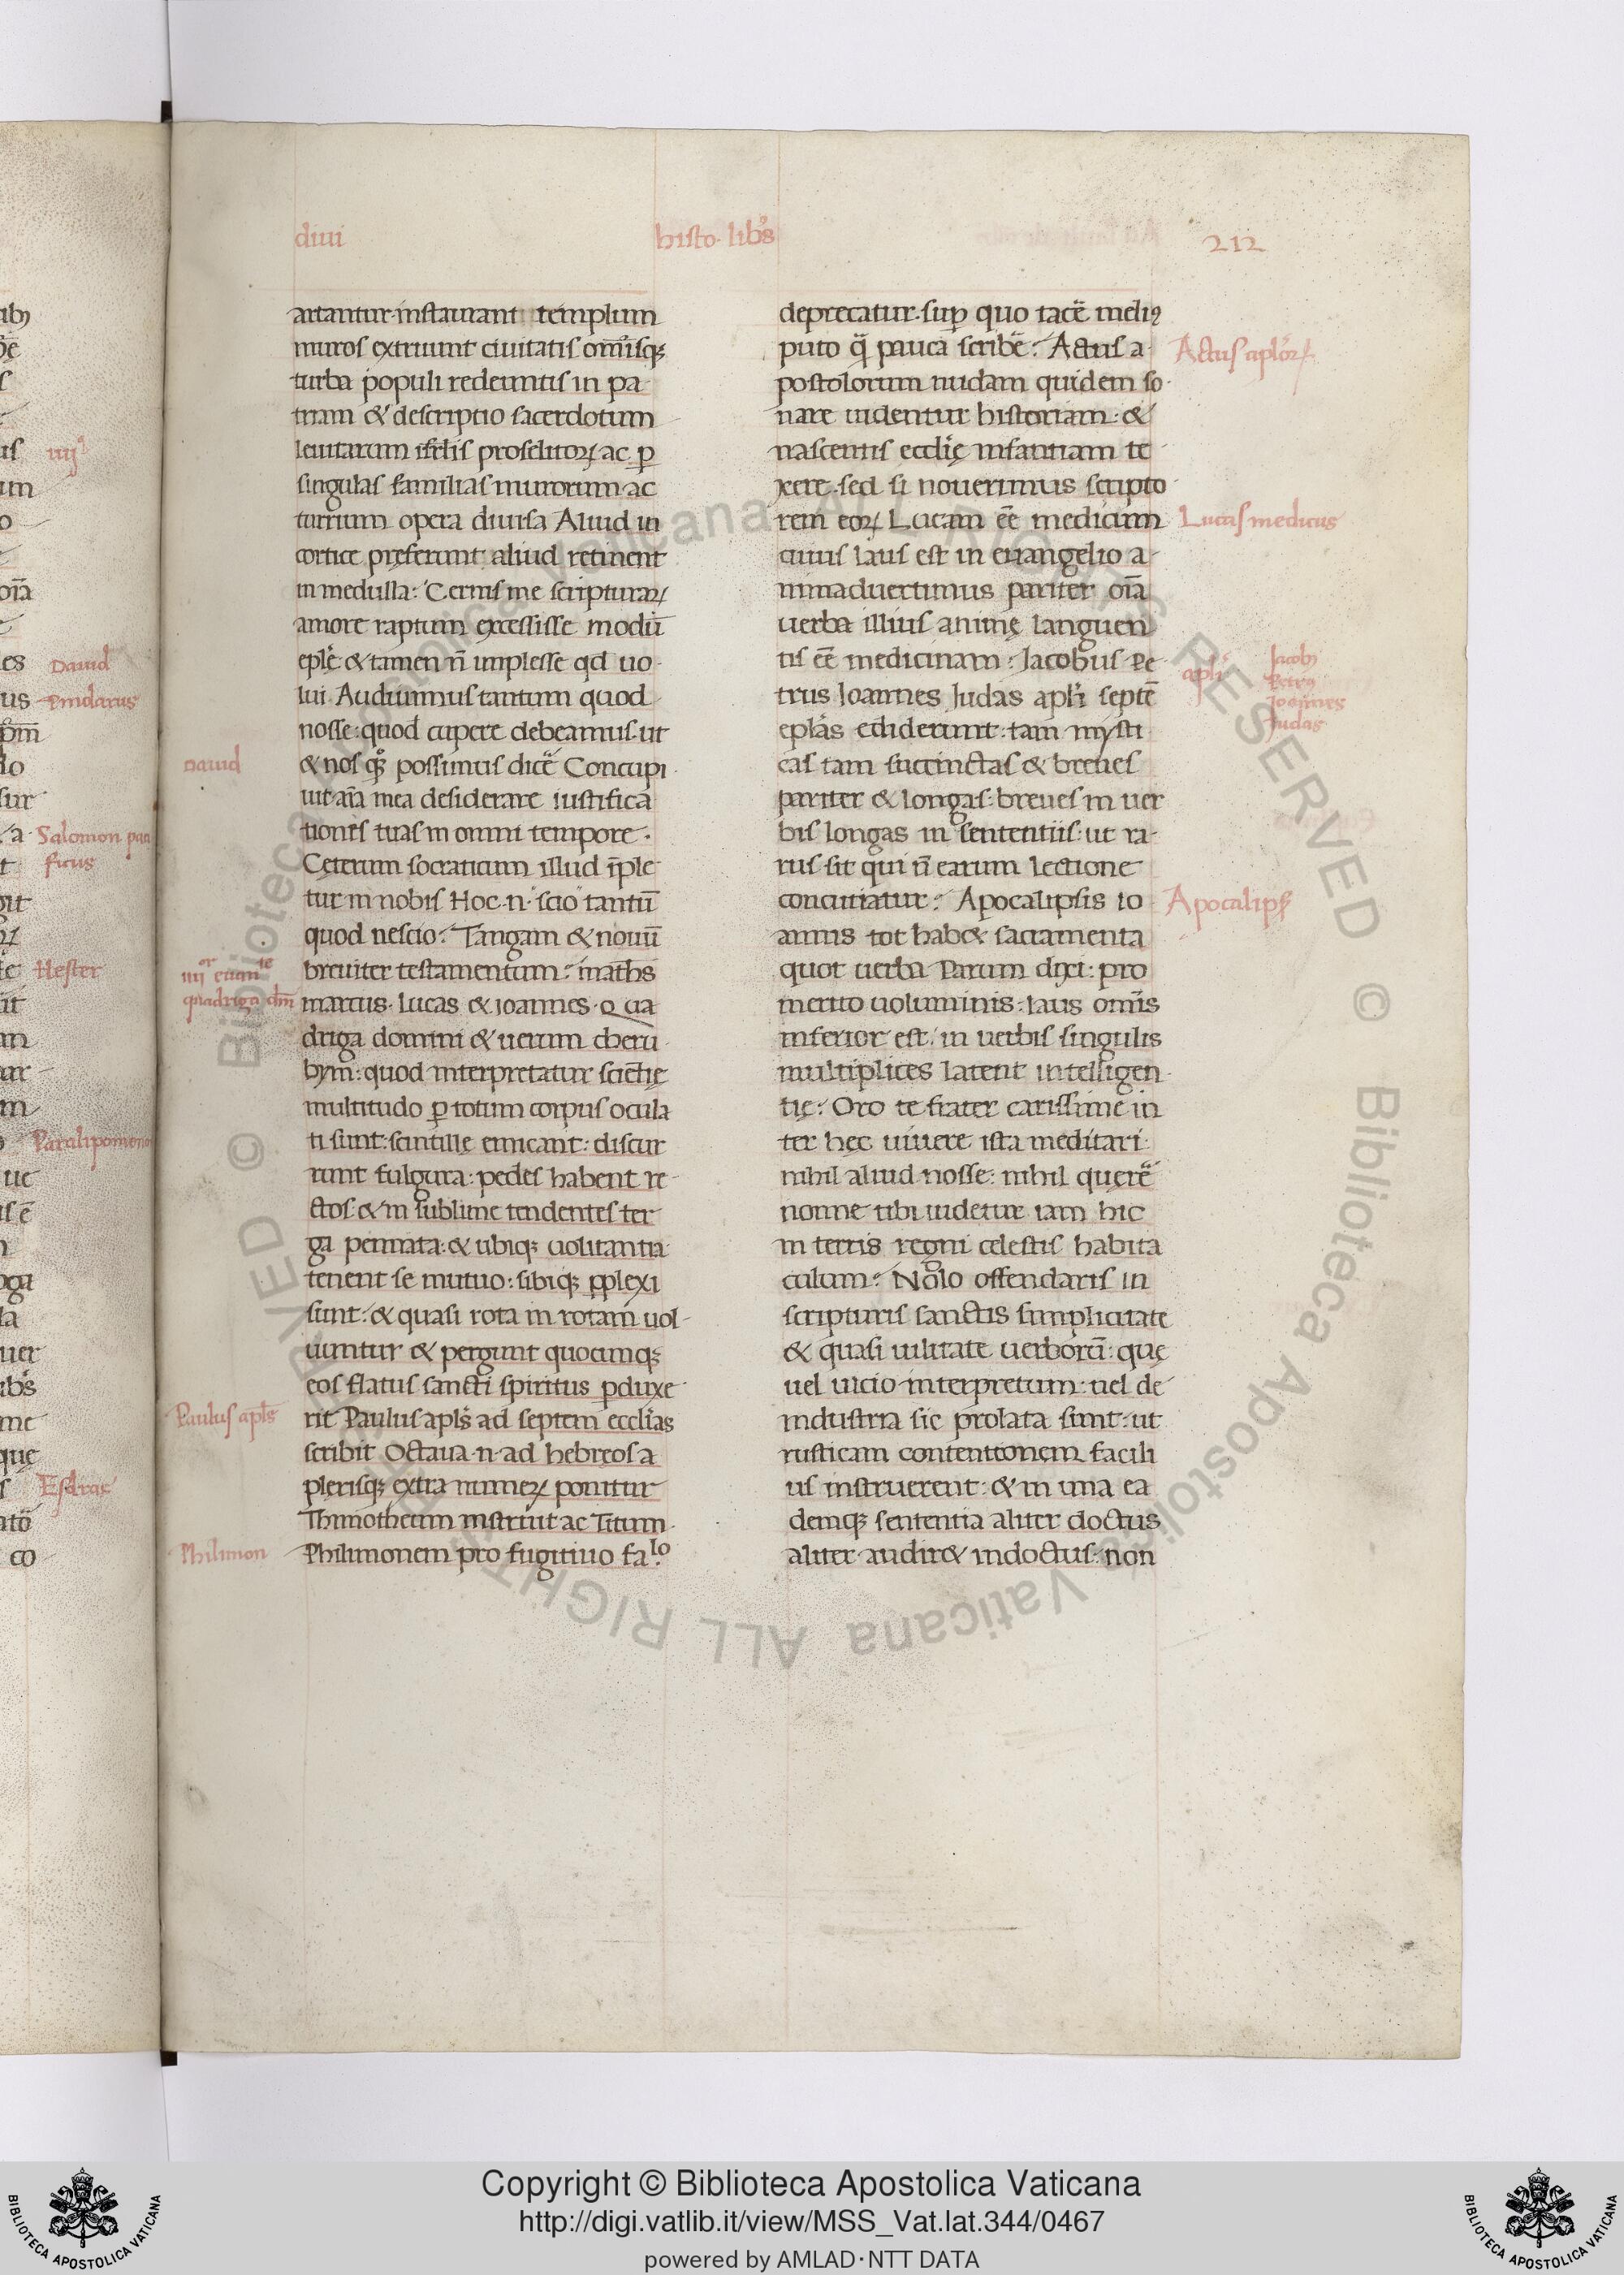 diui
histo. libs
212
artantur. instaurant templum
muros extruunt ciuitatis oms̄isq;
turba populi redeuntis in pa-
triam & descriptio sacerdotum
leuitarum isrlis proselitoꝝ ac ꝑ
singulas familias murorum ac
turrium opera diuisa Aliud in
cortice pręferunt aliud retinent
in medulla: Cernis me scripturaꝝ
amore raptum excessisse modū
eplę̄ & tamen n̄ implesse qd uo-
lui. Audiuimus tantum quod
nosse: quod cupere debeamus. ut
& nos qꝫ possimus dicē Concupi
uit aīa mea desiderare iustifica
tiones tuas in omni tempore.
Cęterum socraticum illud īple
tur in nobis Hoc .n. scio tantū
quod nescio: Tangam & nouū
breuiter testamentum: maths̄
marcus. lucas & ioannes. qua
driga domini & uerum cheru
bym: quod interpretatur scientię
multitudo ꝑ totum corpus ocula
ti sunt. scintillę emicant: discur
runt fulgura: pedes habent re-
ctos. & in sublime tendentes ter
ga pennata. & ubiq; uolitantia
tenent se mutuo: sibiq; ꝑplexi
sunt. & quasi rota in rotam uol-
uuntur & pergunt quocunq;
eos flatus sancti spiritus ꝑduxe-
rit Paulus apls̄ ad septem ecclīas
scribit Octaua .n. ad hebręos a
plerisq; extra numeꝝ ponitur
Thimotheum instruit ac Titum.
Philimonem pro fugitiuo fa.lo
deprecatur. suꝑ quo tacē meliꝰ
puto q̄ pauca scribē: Actus a-
postolorum nudam quidem so-
nare uidentur historiam. &
nascentis ecclię̄ infantiam te
xere. sed si nouerimus scripto
rem eoꝝ Lucam eē medicum
cuius laus est in euangelio a-
nimaduertimus pariter oīa
uerba illius animę languen
tis eē medicinam: Jacobus Pe
trus Ioannes Judas apli septē
eplas ediderunt: tam mysti
cas tam succinctas & breues
pariter & longas: breues in uer
bis longas in sententiis: ut ra-
rus sit qui n̄ earum lectione
concutiatur: Apocalipsis io
annis tot hab& sacramenta
quot uerba Parum dixi: pro
merito uoluminis. laus omīs
inferior est. in uerbis singulis
multiplices latent intelligen-
tię: Oro te frater carissime in
ter hęc uiuere ista meditari.
nihil aliud nosse: nihil querē
nonne tibi uidetur iam hic
in terris regni celestis habita
culum: Nolo offendaris in
scripturis sanctis simplicitate
& quasi uilitate uerborū: quę
uel uicio interpretum: uel de
industria sic prolata sunt: ut
rusticam contentionem facili
us instruerent: & in una ea
demq; sententia aliter doctus
aliter audir& indoctus: non
Actus aploꝝ
Lucas medicus
apli
Jacobꝰ
Petrꝰ
Joannes
Judas
Apocalips
Dauid
quadriga dm̄
Paulus apls̄
Philimon
Dauid
Pindarus
Salomon pa
ficus
Hester
Paralipomeno
Esdras
Copyright © Biblioteca Apostolica Vaticana
http://digi.vatlib.it/view/MSS_Vat.lat.344/0467
powered by AMLAD·NTT DATA
BIBLIOTECA APOSTOLICA VATICANA
BIBLIOTECA APOSTOLICA VATICANA
© Biblioteca Apostolica Vaticana ALL RIGHTS RESERVED © Biblioteca Apostolica Vaticana ALL RIGHTS RESERVED